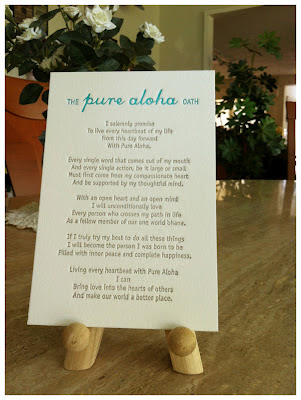 THE pure aloha OATH
I solemnly promise
To live every heartbeat of my life
from this day forward
With Pure Aloha.
Every single word that comes out of my mouth
And every single action, be it large or small
Must first come from my compassionate heart
And be supported by my thoughtful mind.
With an open heart and an open mind
I will unconditionally love
Every person who crosses my path in life
As a fellow member of our one world ohana.
If I truly try my best to do all these things
I will become the person I was born to be
Filled with inner peace and complete happiness.
Living every heartbeat with Pure Aloha
I can
Bring love into the hearts of others
And make our world a better place.